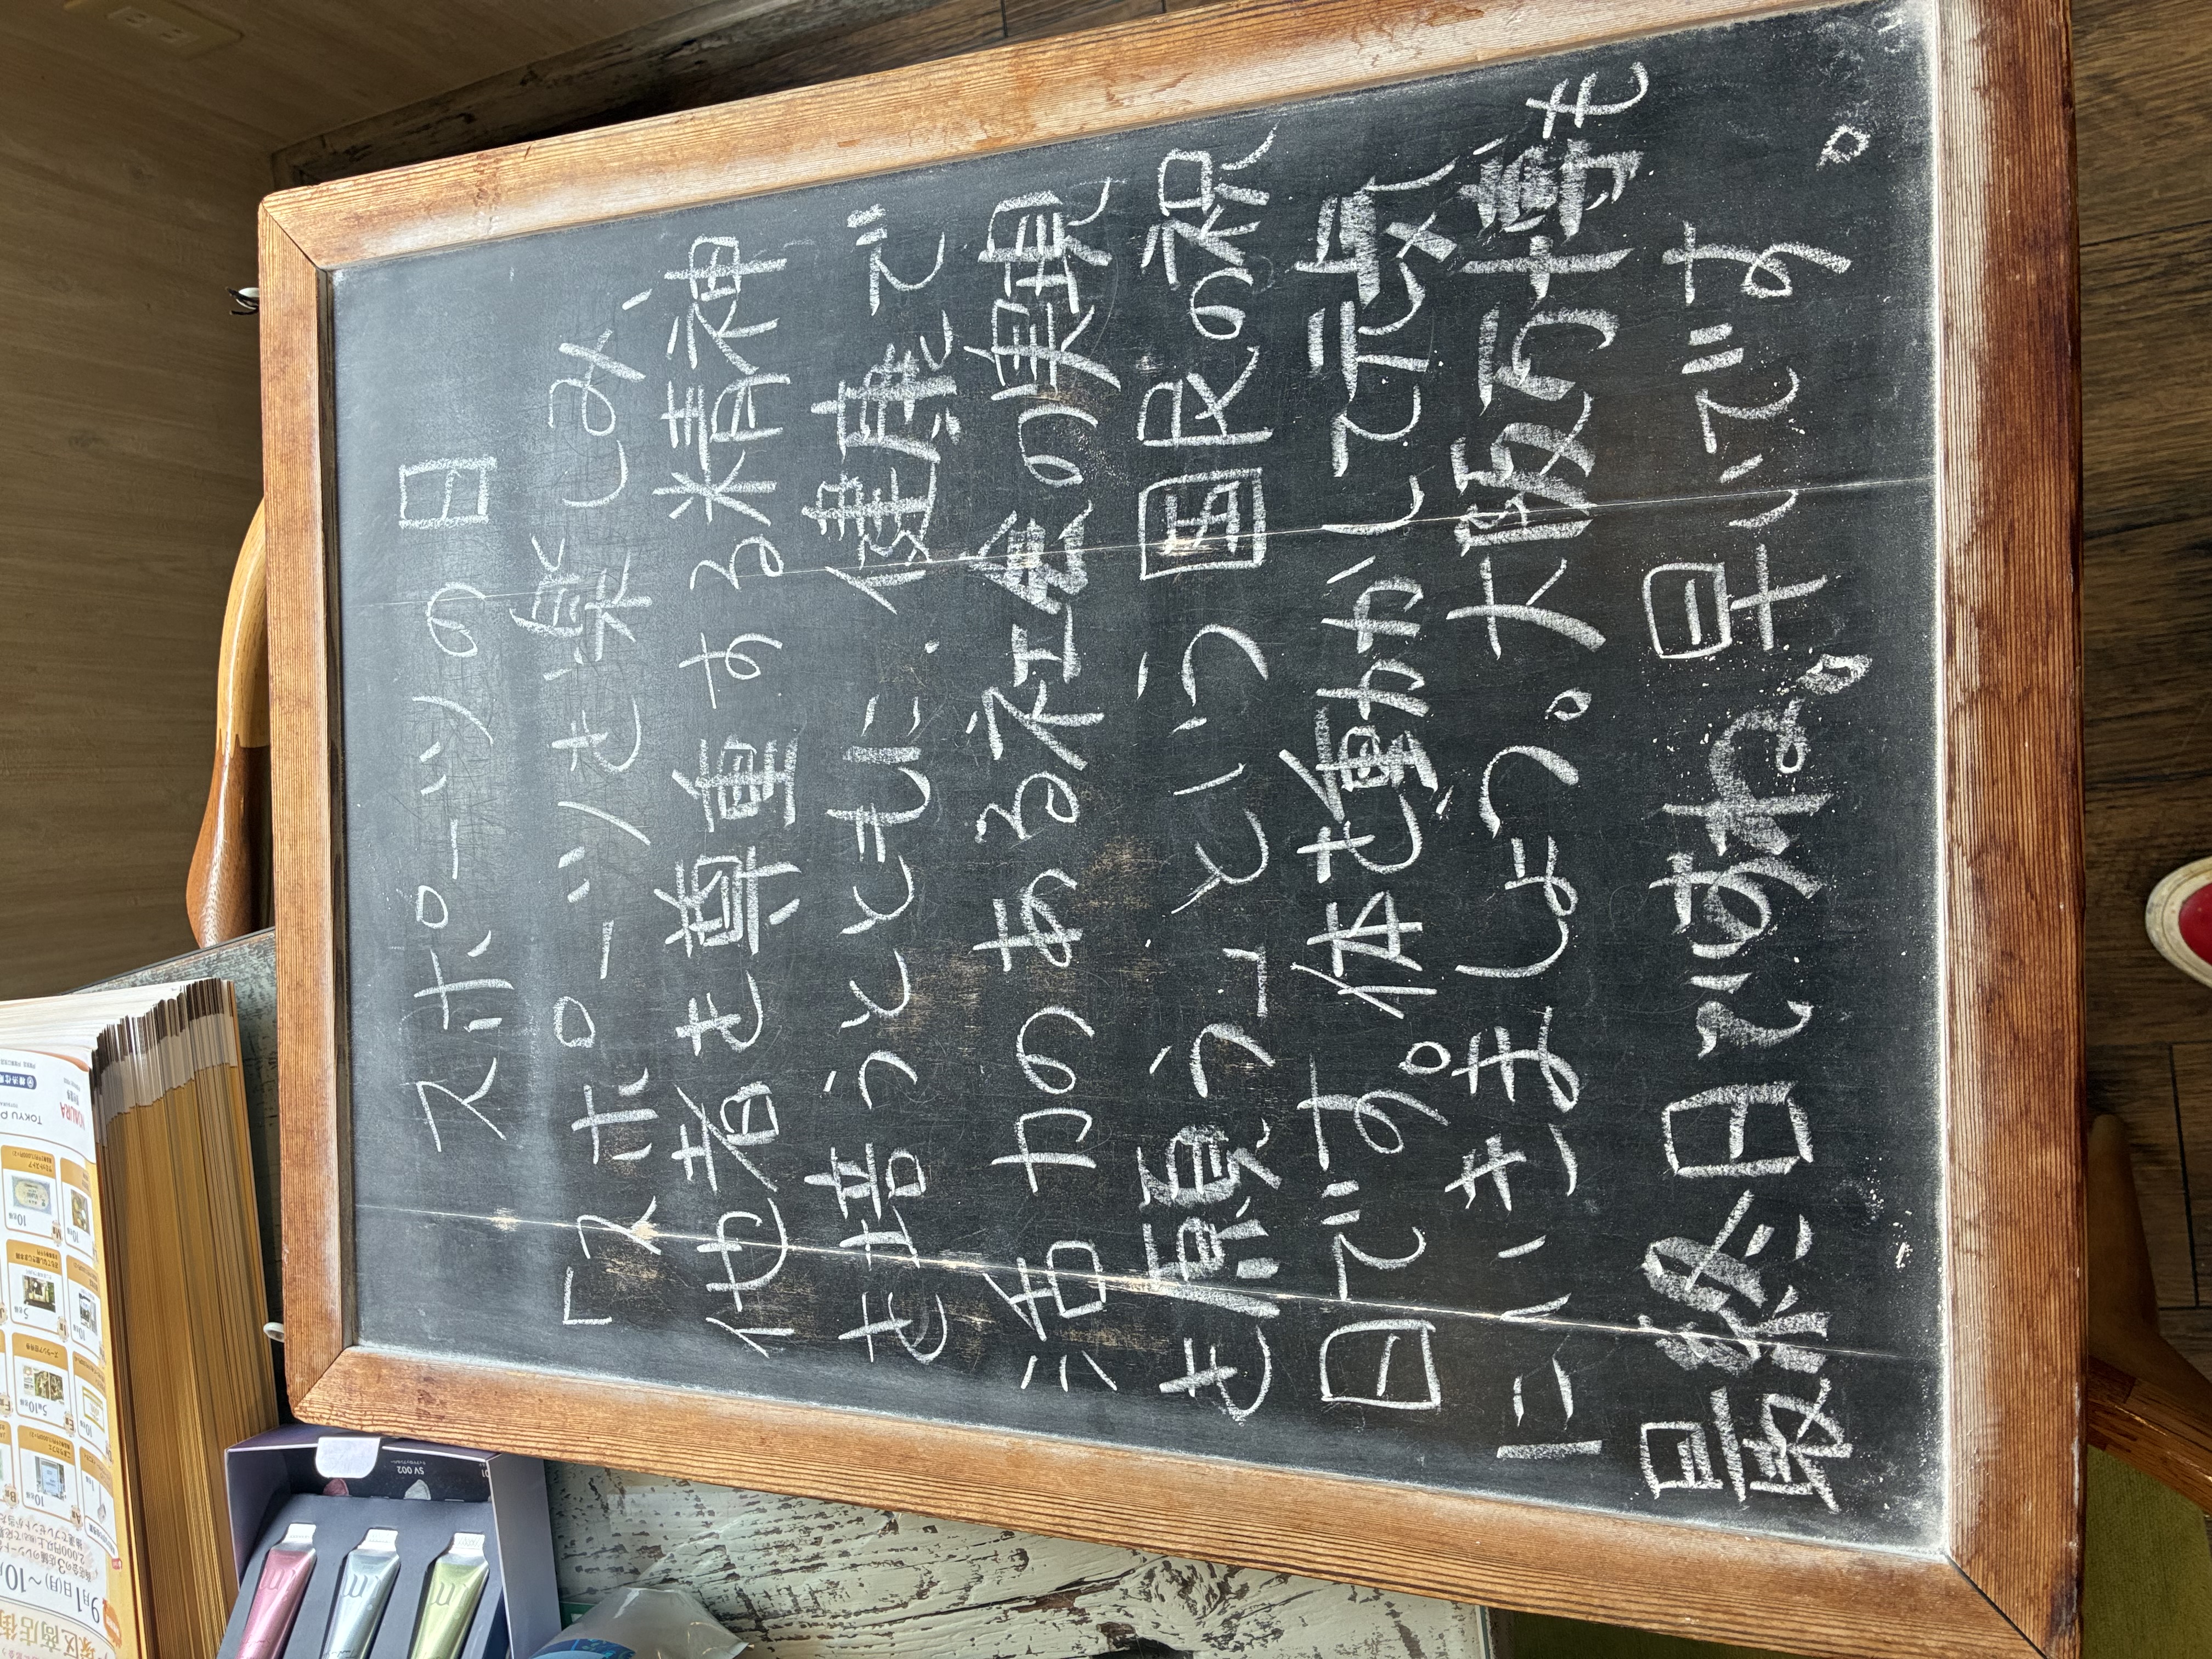 スポーツの日
「スポーツを楽しみ、
他者を尊重する精神
を培うとともに、健康で
活力のある社会の実現
を願う」という国民の祝
日です。体を動かして元気
にいきましょう。大阪万博も
最終日ですね。早いです。
SV 002
9月1日(月)～10月